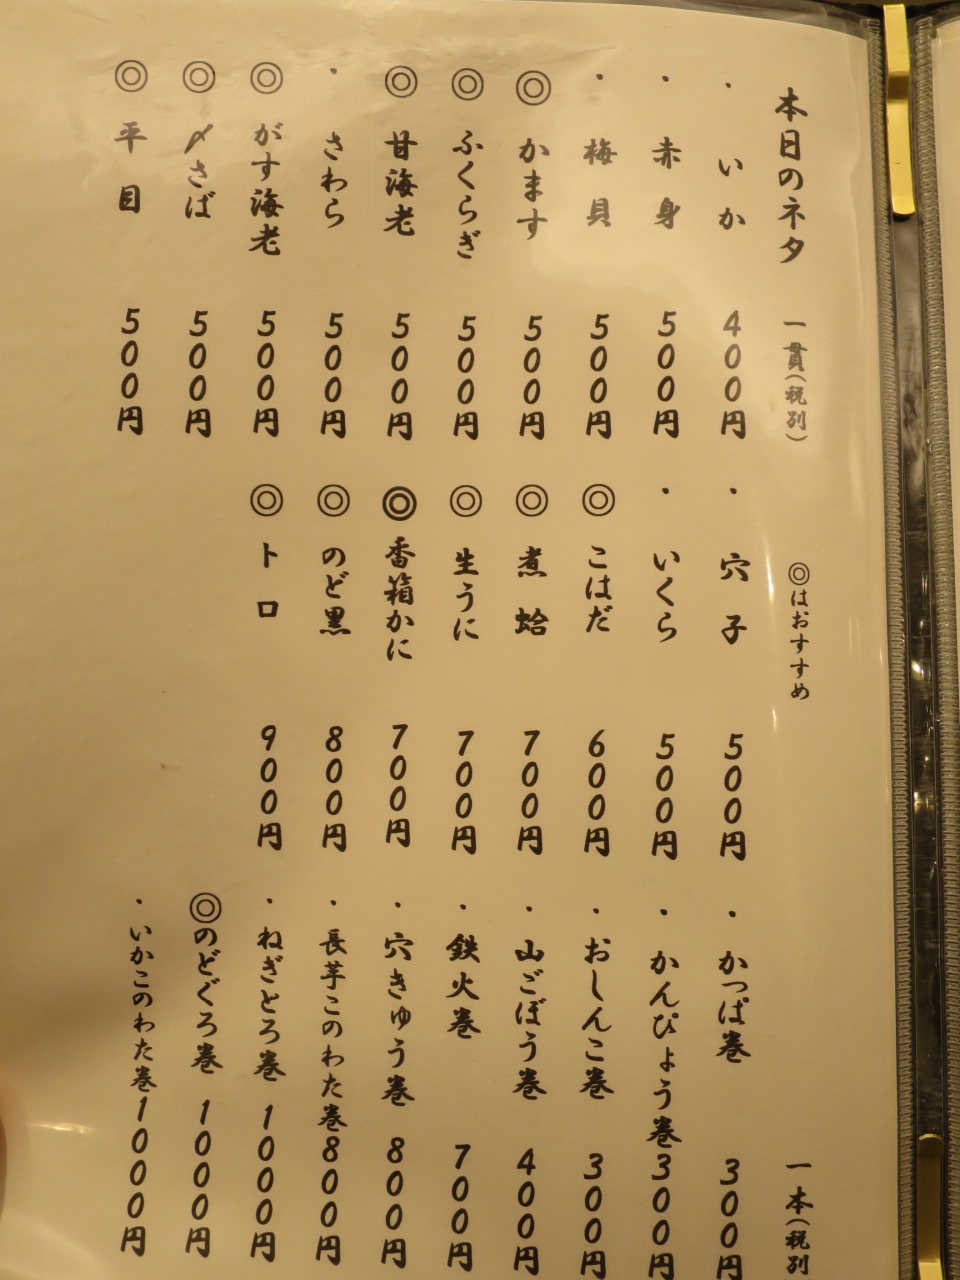 本日のネタ
一貫(税別)
◎はおすすめ
一本(税別
・いか 400円
・赤身 500円
・梅貝 500円
◎かます 500円
◎ふくらぎ 500円
◎甘海老 500円
・さわら 500円
◎がす海老 500円
◎〆さば 500円
◎平目 500円
・穴子 500円
・いくら 500円
◎こはだ 600円
◎煮蛤 700円
◎生うに 700円
◎香箱かに 700円
◎のど黒 800円
◎トロ 900円
・かっぱ巻 300円
・かんぴょう巻 300円
・おしんこ巻 300円
・山ごぼう巻 400円
・鉄火巻 700円
・穴きゅう巻 800円
・長芋このわた巻 800円
・ねぎとろ巻 1000円
◎のどぐろ巻 1000円
・いかこのわた巻 1000円